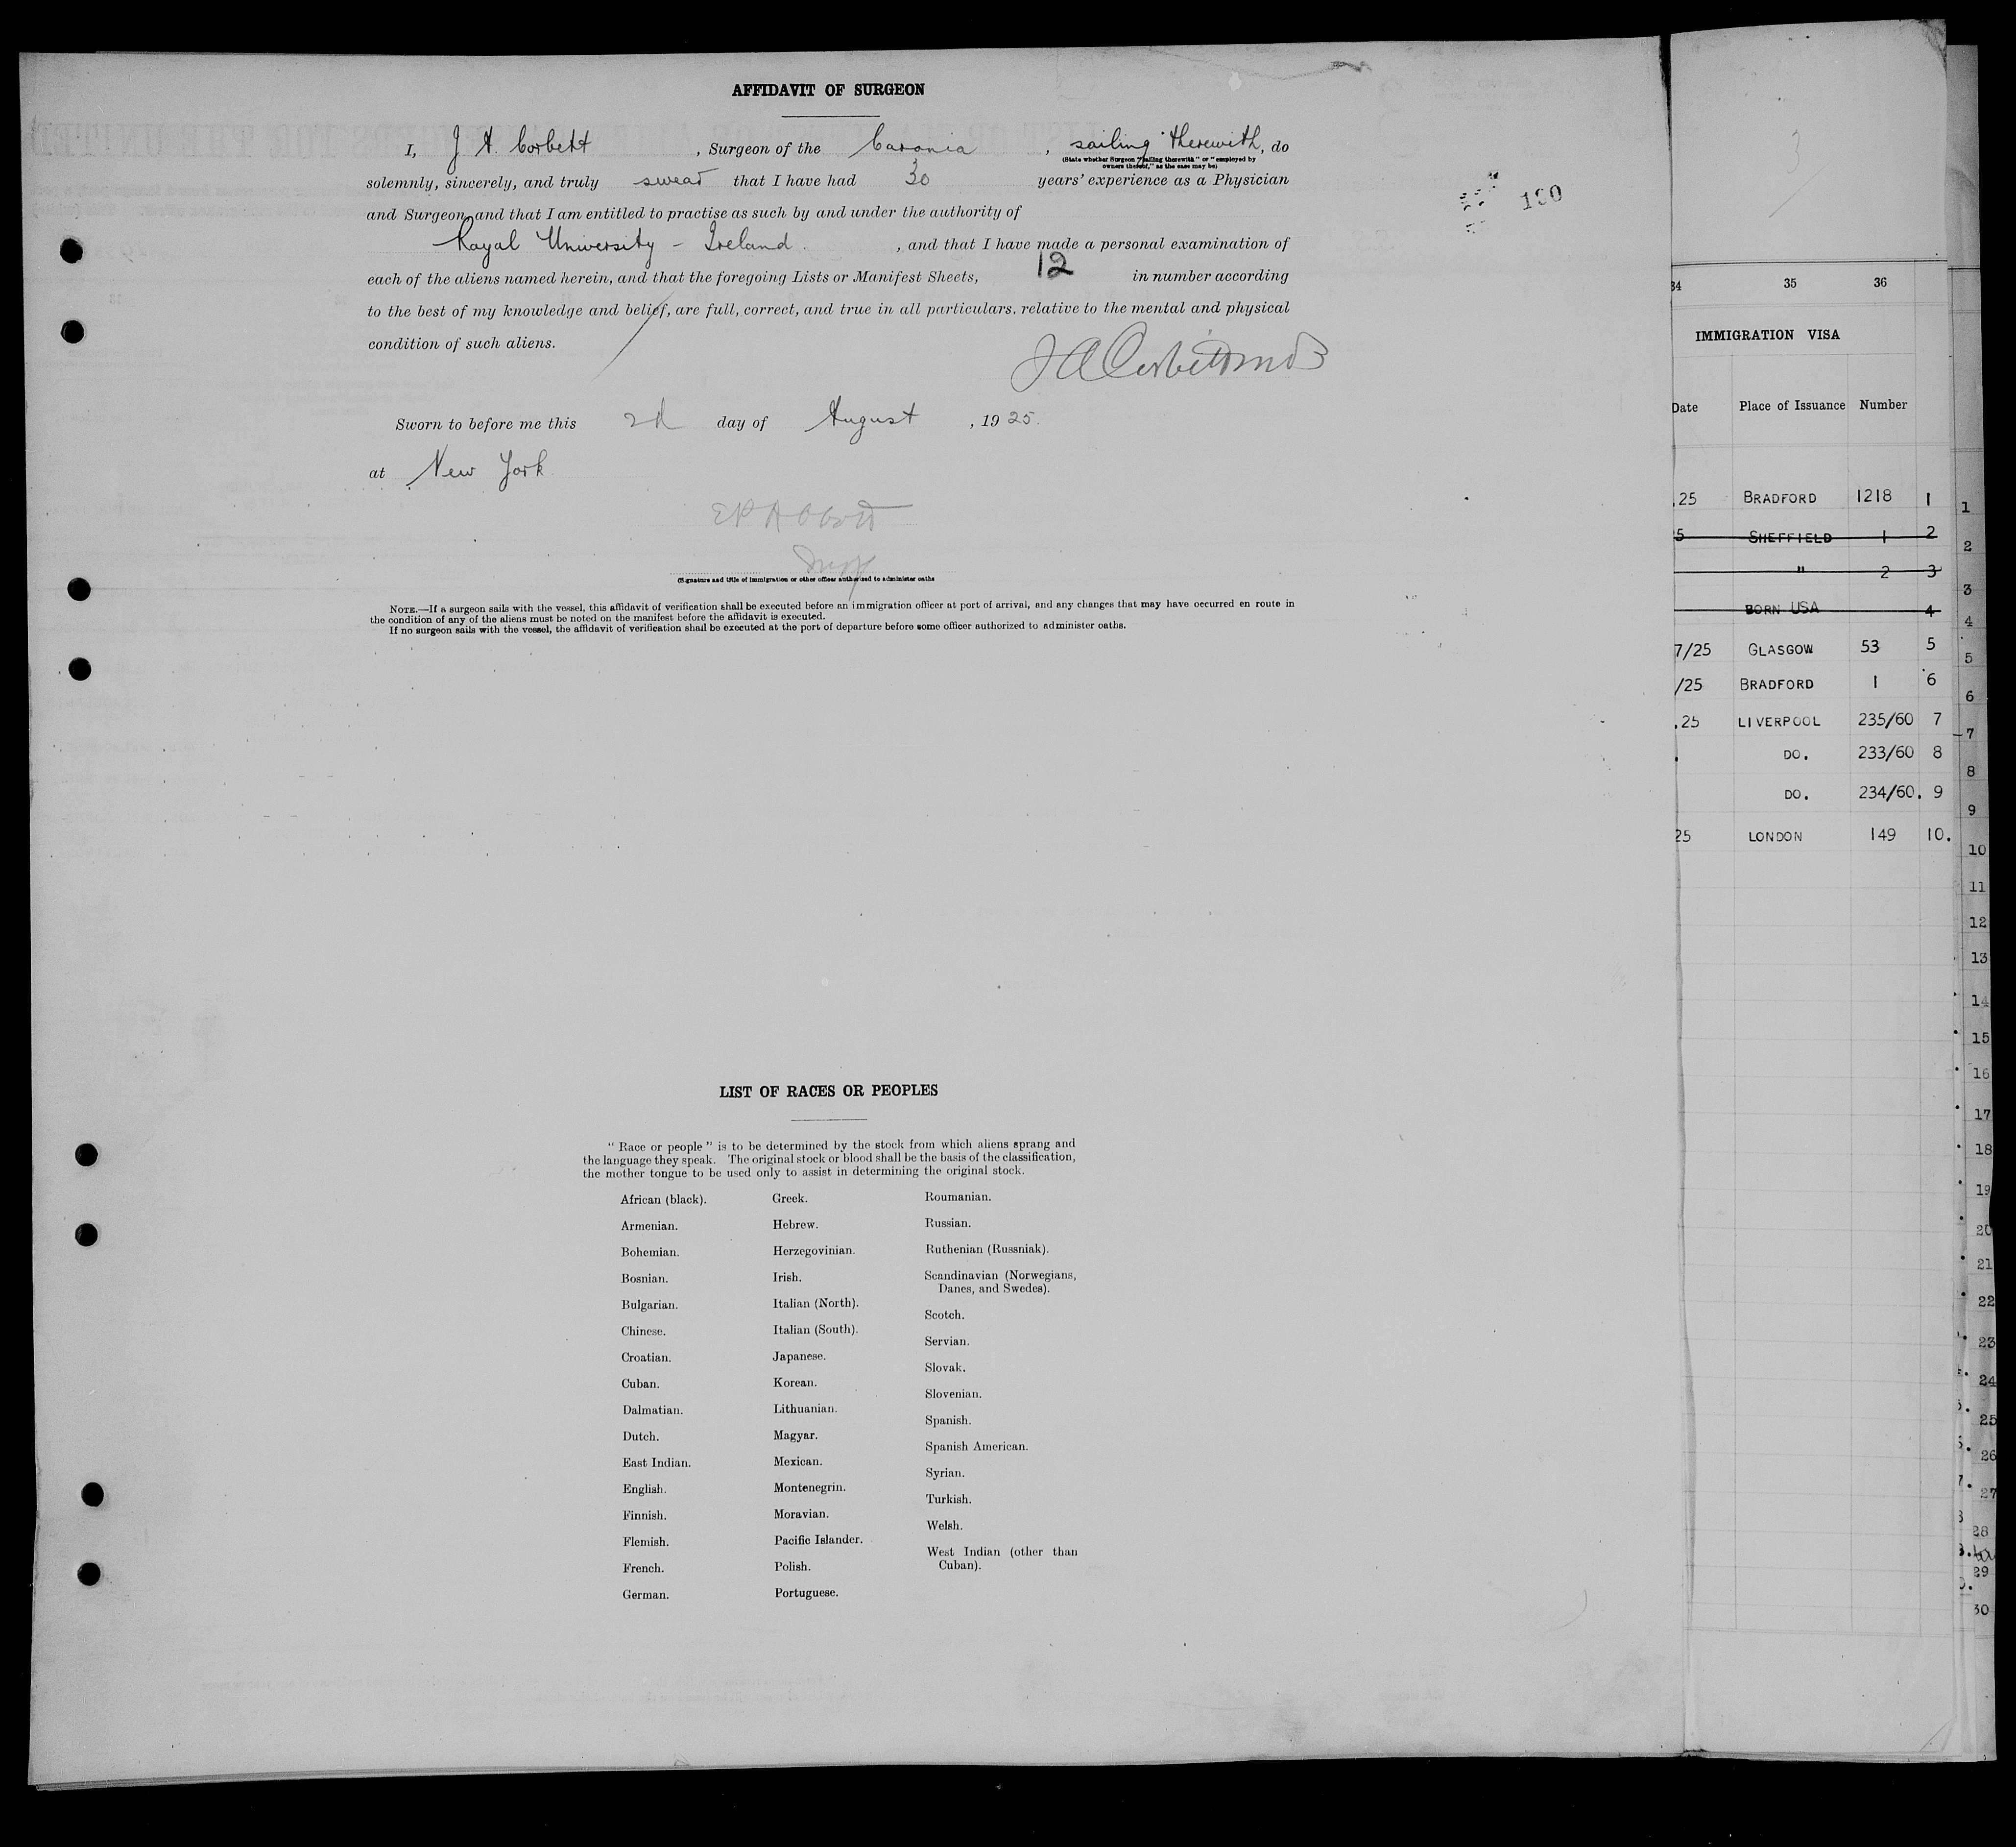 AFFIDAVIT OF SURGEON
I, J. A. Corbett , Surgeon of the Caronia , sailing therewith, do
(State whether Surgeon "sailing therewith" or "employed by
owners thereof," as the case may be)
solemnly, sincerely, and truly swear that I have had 30 years' experience as a Physician
and Surgeon, and that I am entitled to practise as such by and under the authority of
Royal University - Ireland. , and that I have made a personal examination of
each of the aliens named herein, and that the foregoing Lists or Manifest Sheets, 12 in number according
to the best of my knowledge and belief, are full, correct, and true in all particulars. relative to the mental and physical
condition of such aliens.
J A Corbett MD
Sworn to before me this 2d day of August , 1925.
at New York
E P Abbott
Insp
(Signature and title of immigration or other officer authorized to administer oaths
NOTE.—If a surgeon sails with the vessel, this affidavit of verification shall be executed before an immigration officer at port of arrival, and any changes that may have occurred en route in
the condition of any of the aliens must be noted on the manifest before the affidavit is executed.
If no surgeon sails with the vessel, the affidavit of verification shall be executed at the port of departure before some officer authorized to administer oaths.
LIST OF RACES OR PEOPLES
" Race or people " is to be determined by the stock from which aliens sprang and
the language they speak. The original stock or blood shall be the basis of the classification,
the mother tongue to be used only to assist in determining the original stock.
African (black).
Armenian.
Bohemian.
Bosnian.
Bulgarian.
Chinese.
Croatian.
Cuban.
Dalmatian.
Dutch.
East Indian.
English.
Finnish.
Flemish.
French.
German.
Greek.
Hebrew.
Herzegovinian.
Irish.
Italian (North).
Italian (South).
Japanese.
Korean.
Lithuanian.
Magyar.
Mexican.
Montenegrin.
Moravian.
Pacific Islander.
Polish.
Portuguese.
Roumanian.
Russian.
Ruthenian (Russniak).
Scandinavian (Norwegians,
Danes, and Swedes).
Scotch.
Servian.
Slovak.
Slovenian.
Spanish.
Spanish American.
Syrian.
Turkish.
Welsh.
West Indian (other than
Cuban).
190
3
34 35 36
IMMIGRATION VISA
Date Place of Issuance Number
.25 BRADFORD 1218 1
5 SHEFFIELD 1 2
" 2 3
BORN USA 4
7/25 GLASGOW 53 5
/25 BRADFORD 1 6
.25 LIVERPOOL 235/60 7
DO. 233/60 8
DO. 234/60. 9
25 LONDON 149 10.
1
2
3
4
5
6
7
8
9
10
11
12
13
14
15
16
17
18
19
20
21
22
23
24
25
26
27
28
29
30